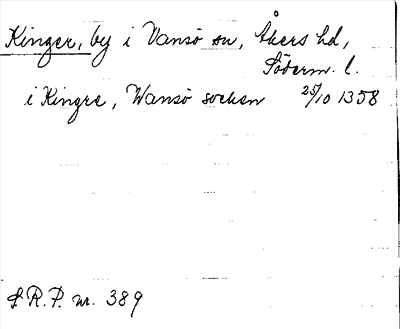 Kinger, by i Vansö sn, Åkers hd,
Söderm. l.
i Kingre, Wansö socken 25/10 1358
S R. P. nr. 389